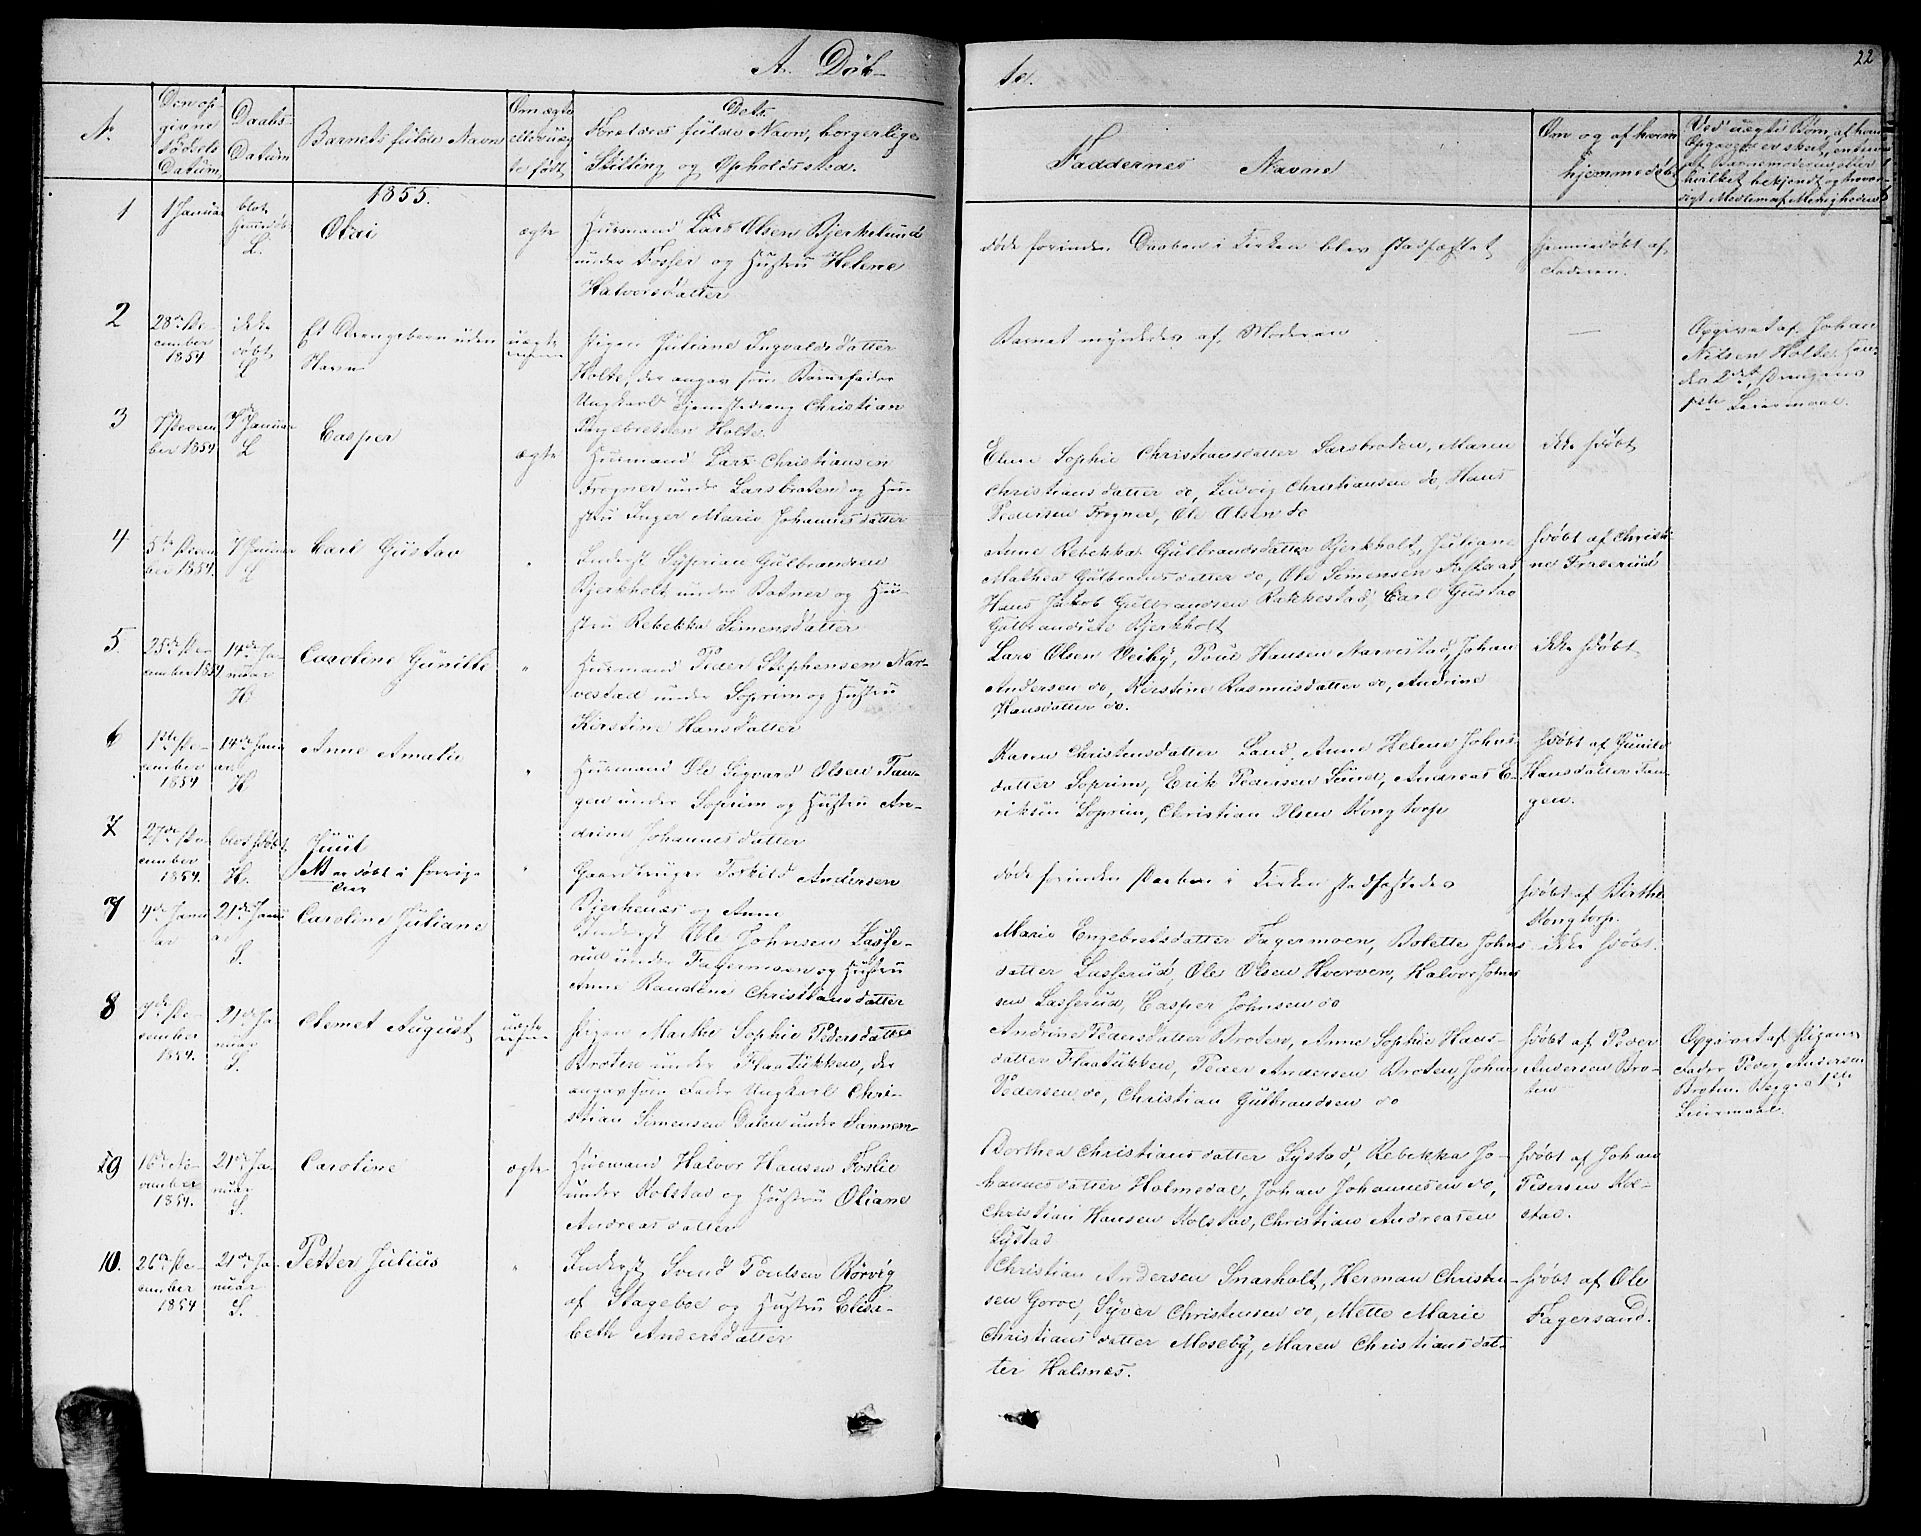 A. Døb-
te.
22
Nr.
Den op-
givne
Fødsels
Datum
Daabs-
Datum
Barnets fulde Navn
Om ægte
eller uæg-
te født
Dets
Forældres fulde Navn, borgerlige
Stilling og Opholdssted.
Faddernes Navne
Om og af hvem
hjemmedøbt
Ved uægte Børn, af hvem
Opgaven er skeet, enten
af Barnemoderen eller
hvilket bekjendt og trovær-
digt Medlem af Menigheden
1855.
1
1 Januar
blot
hjemdøbt
L.
Olai
ægte
Huusmand Lars Olsen Bjerkelund
under Fosser og Hustru Helene
Halvorsdatter
døde forinden Daaben i Kirken blev stadfæstet
hjemmedøbt af
Faderen.
2
28de De-
cember
1854
ikke
døbt
L
Et Drengebarn uden
Navn
uægte
Pigen Juliane Ingvaldsdatter
Holte, der angav som Barnefader
Ungkarl Tjenestedreng Christian
Ingebretsen Holte.
Barnet myrdedes af Moderen
—
Opgivet af Johan
Nilsen Holte.
des 2det, Drengens
1ste Leiermaal.
3
1 Decem
ber 1854
7de Januar
L
Casper
ægte
Huusmand Lars Christiansen
Frogner under Larsbraten og Hu-
stru Inger Marie Johannesdatter
Eline Sophie Christiansdatter Larsbraten, Maren
Christiansdatter do, Ludvig Christiansen do, Hans
Pedersen Frogner, Ole Olsen do
ikke hdøbt
4
5te Decem
ber 1854.
7 Januar
L
Carl Gustav
"
Inderst Syprian Gulbrandsen
Bjerkholt under Botner og Hu-
stru Rebekka Simensdatter
Anne Rebekka Gulbrandsdatter Bjerkholt, Juliane
Mathea Gulbrandsdatter do, Ole Simensen Fosteraas,
Hans Jakob Gulbrandsen Rakkestad, Carl Gustav
Gulbrandsen Bjerkholt
hdøbt af Christi-
ne Fraserud
5.
25de De-
cember 1854
14de Ja-
nuar
H
Caroline Gunilde
"
Huusmand Peder Stephensen Nar-
vestad under Soprim og Hustru
Kirstine Hansdatter
Lars Olsen Veiby, Poul Hansen Narvestad, Johan
Andersen do, Kirstine Rasmusdatter do, Andrine
Hansdatter do.
ikke hdøbt
6
1ste De-
cember
1854
14de Janu
ar
H
Anne Amalie
"
Huusmand Ole Sigvard Olsen Tan-
gen under Soprim og Hustru An-
drine Johannesdatter
Karen Christensdatter Sand, Anne Helene Johns-
datter Soprim, Erik Pedersen Sund, Andreas E-
riksen Soprim, Christian Olsen Kongtorp
hdøbt af Gunild
Hansdatter Tan-
gen.
7
27de De-
cember
1854.
blot hdøbt
H.
Juul
NB er døbt i forrige
Aar
"
Gaardbruger Torkild Andersen
Bjerkenæs og Anne
døde forinden Daaben i Kirken stadfæstedes
hdøbt af Birthe
Kongtorp.
7
4de Janu
ar
21de Janu
ar
S.
Caroline Juliane
Inderst Ole Johnsen Lasse-
rud under Fagermoen og Hustru
Anne Randine Christiansdatter
Marie Engebretsdatter Fagermoen, Bolette Johns
datter Lasserud, Ole Olsen Hverven, Halvor Johns
sen Lasserud, Casper Johnsen do
ikke hdøbt.
8
7de De-
cember
1854.
21de Ja-
nuar
S.
Clemet August
uægte
Pigen Marthe Sophie Pedersdatter
Broten under Flaatukken, der
angav som Fader Ungkarl Chri-
stian Simensen Dalen under Sannem
Andrine Pedersdatter Broten, Anne Sophie Hans-
datter Flaatukken, Peder Andersen Broten, Johan
Pedersen do, Christian Gulbrandsen do
hdøbt af Peder
Andersen Bro-
ten
Opgivet af Pigens
Fader Peder Andersen
Broten. Begges 1ste
Leiermaal.
9
10de No-
vember
1854.
21de Ja-
nuar
S.
Caroline
ægte
Huusmand Halvor Hansen Foslie
under Kolstad og Hustru Oliane
Andreasdatter
Berthea Christiansdatter Lystad, Rebekka Jo-
hannesdatter Holmedal, Johan Johannesen do,
Christian Hansen Kolstad, Christian Andreasen
Lystad
hdøbt af Johan
Pedersen Kol-
stad.
10.
26de De-
cember
1854
21de Ja-
nuar
S.
Petter Julius
"
Inderst Svend Poulsen Rörvig
af Stageboe og Hustru Elisa-
beth Andersdatter
Christian Andersen Snarholt, Herman Christen-
sen Gorve, Syver Christensen do, Mette Marie
Christiansdatter Moseby, Maren Christiansdat-
ter Halsnes.
hdøbt af Ole
Fagersand.